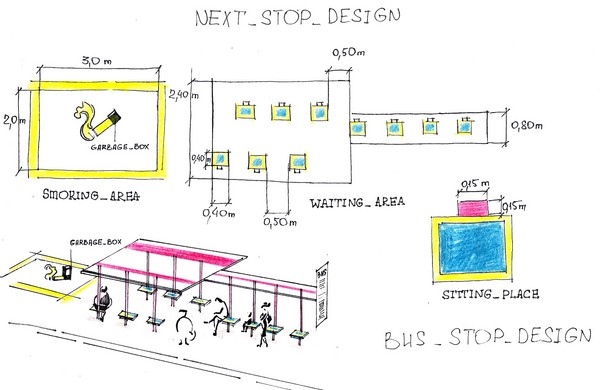 NEXT_STOP_DESIGN
3,0 m
2,0 m
GARBAGE_BOX
SMORING_AREA
0,50m
2,40 m
0,40m
0,40m
0,50m
WAITING_AREA
0,80m
0,15m
0,15m
SITTING_PLACE
GARBAGE_BOX
BUS
BUS_STOP_DESIGN